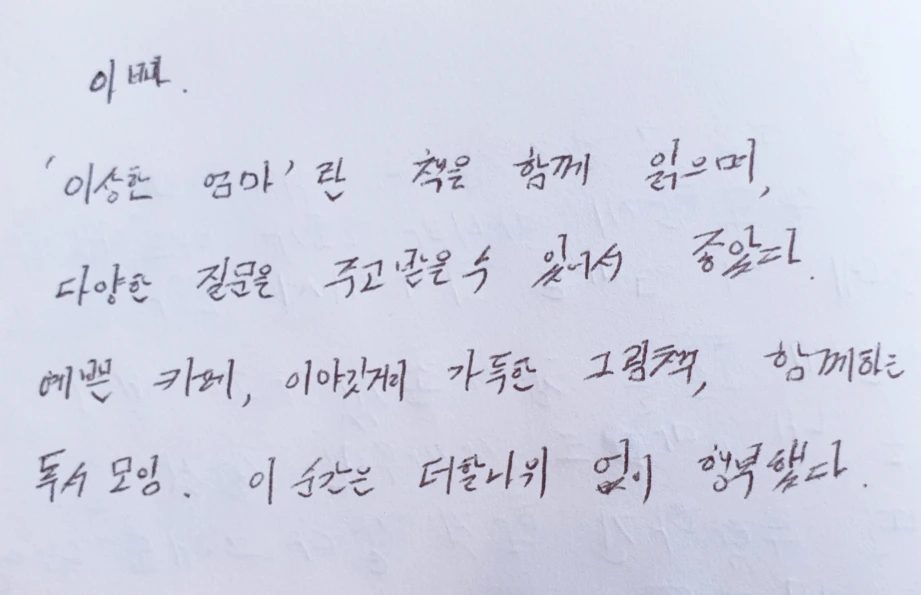 이뻐.
'이상한 엄마'란 책을 함께 읽으며,
다양한 질문을 주고받을 수 있어서 좋았다.
예쁜 카페, 이야깃거리 가득한 그림책, 함께하는
독서 모임. 이 순간은 더할나위 없이 행복했다.